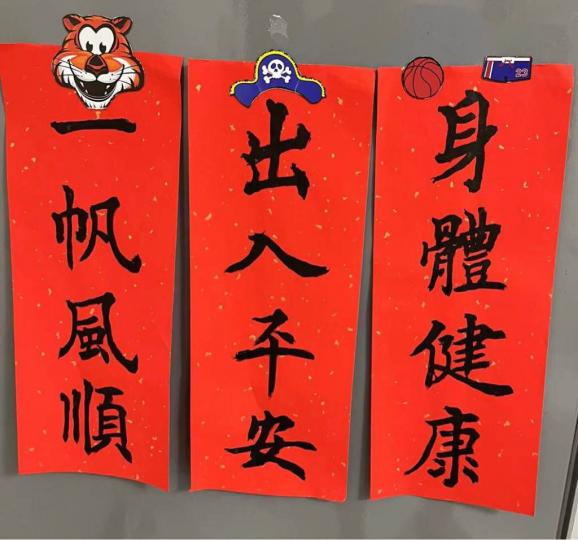 一帆風順
出入平安
身體健康
23